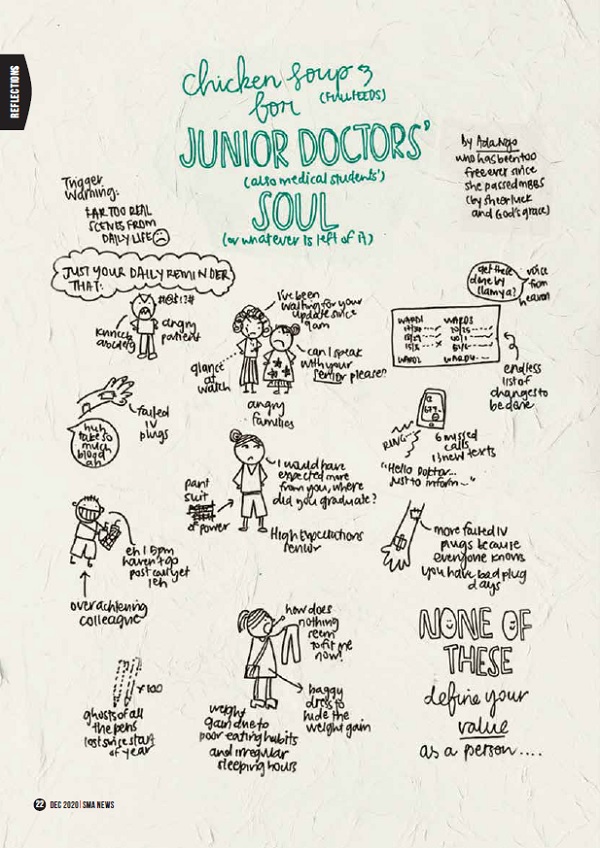 REFLECTIONS
chicken soup
(FULLFEEDS)
for
JUNIOR DOCTORS'
(also medical students')
SOUL
(or whatever is left of it)
by Ada Ngo
who has been too
free ever since
she passed MBBS
(by sheer luck
and God's grace)
Trigger
Warning:
FAR TOO REAL
SCENES FROM
DAILY LIFE
JUST YOUR DAILY REMINDER
THAT:
#@$!?#
angry
patient
I've been
waiting for your
update since
9am
glance
at
watch
can I speak
with your
senior please?
angry
families
get these
done by
11am ya?
voice
from
heaven
WARD 1
WARD 3
WARD 2
WARD 4
endless
list of
changes to
be done
failed
IV
plugs
huh
take so
much
blood
ah
RING
6 missed
calls
13 new texts
"Hello Doktor...
just to inform..."
pant
suit
of power
I would have
expected more
from you, where
did you graduate?
High Expectations
Senior
eh 15pm
haven't go
post call yet
leh
overachieving
colleague
more failed IV
plugs because
everyone knows
you have bad plug
days
ghosts of all
the pens
lost since start
of year
x100
how does
nothing
seem
to fit me
now?
baggy
dress to
hide the
weight gain
weight
gain due to
poor eating habits
and irregular
sleeping hours
NONE OF
THESE
define your
value
as a person....
22 DEC 2020 | SMA NEWS